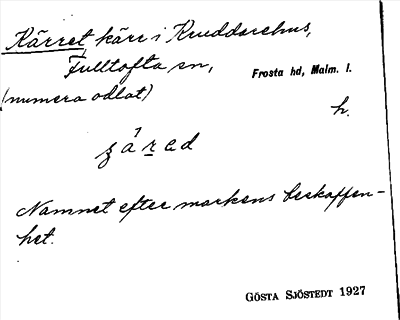 Kärret, kärr i Kruddarehus,
Fulltofta sn, Frosta hd, Malm. l.
(numera odlat) h.
Namnet efter markens beskaffen-
het.
GÖSTA SJÖSTEDT 1927